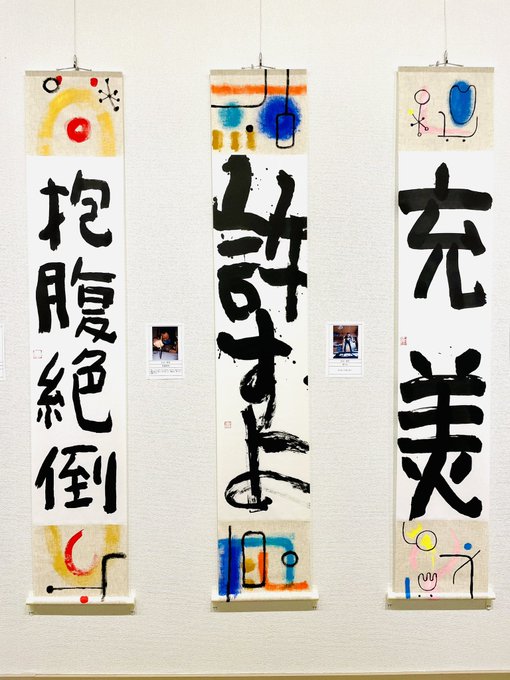 抱腹絶倒
許すよ
充美